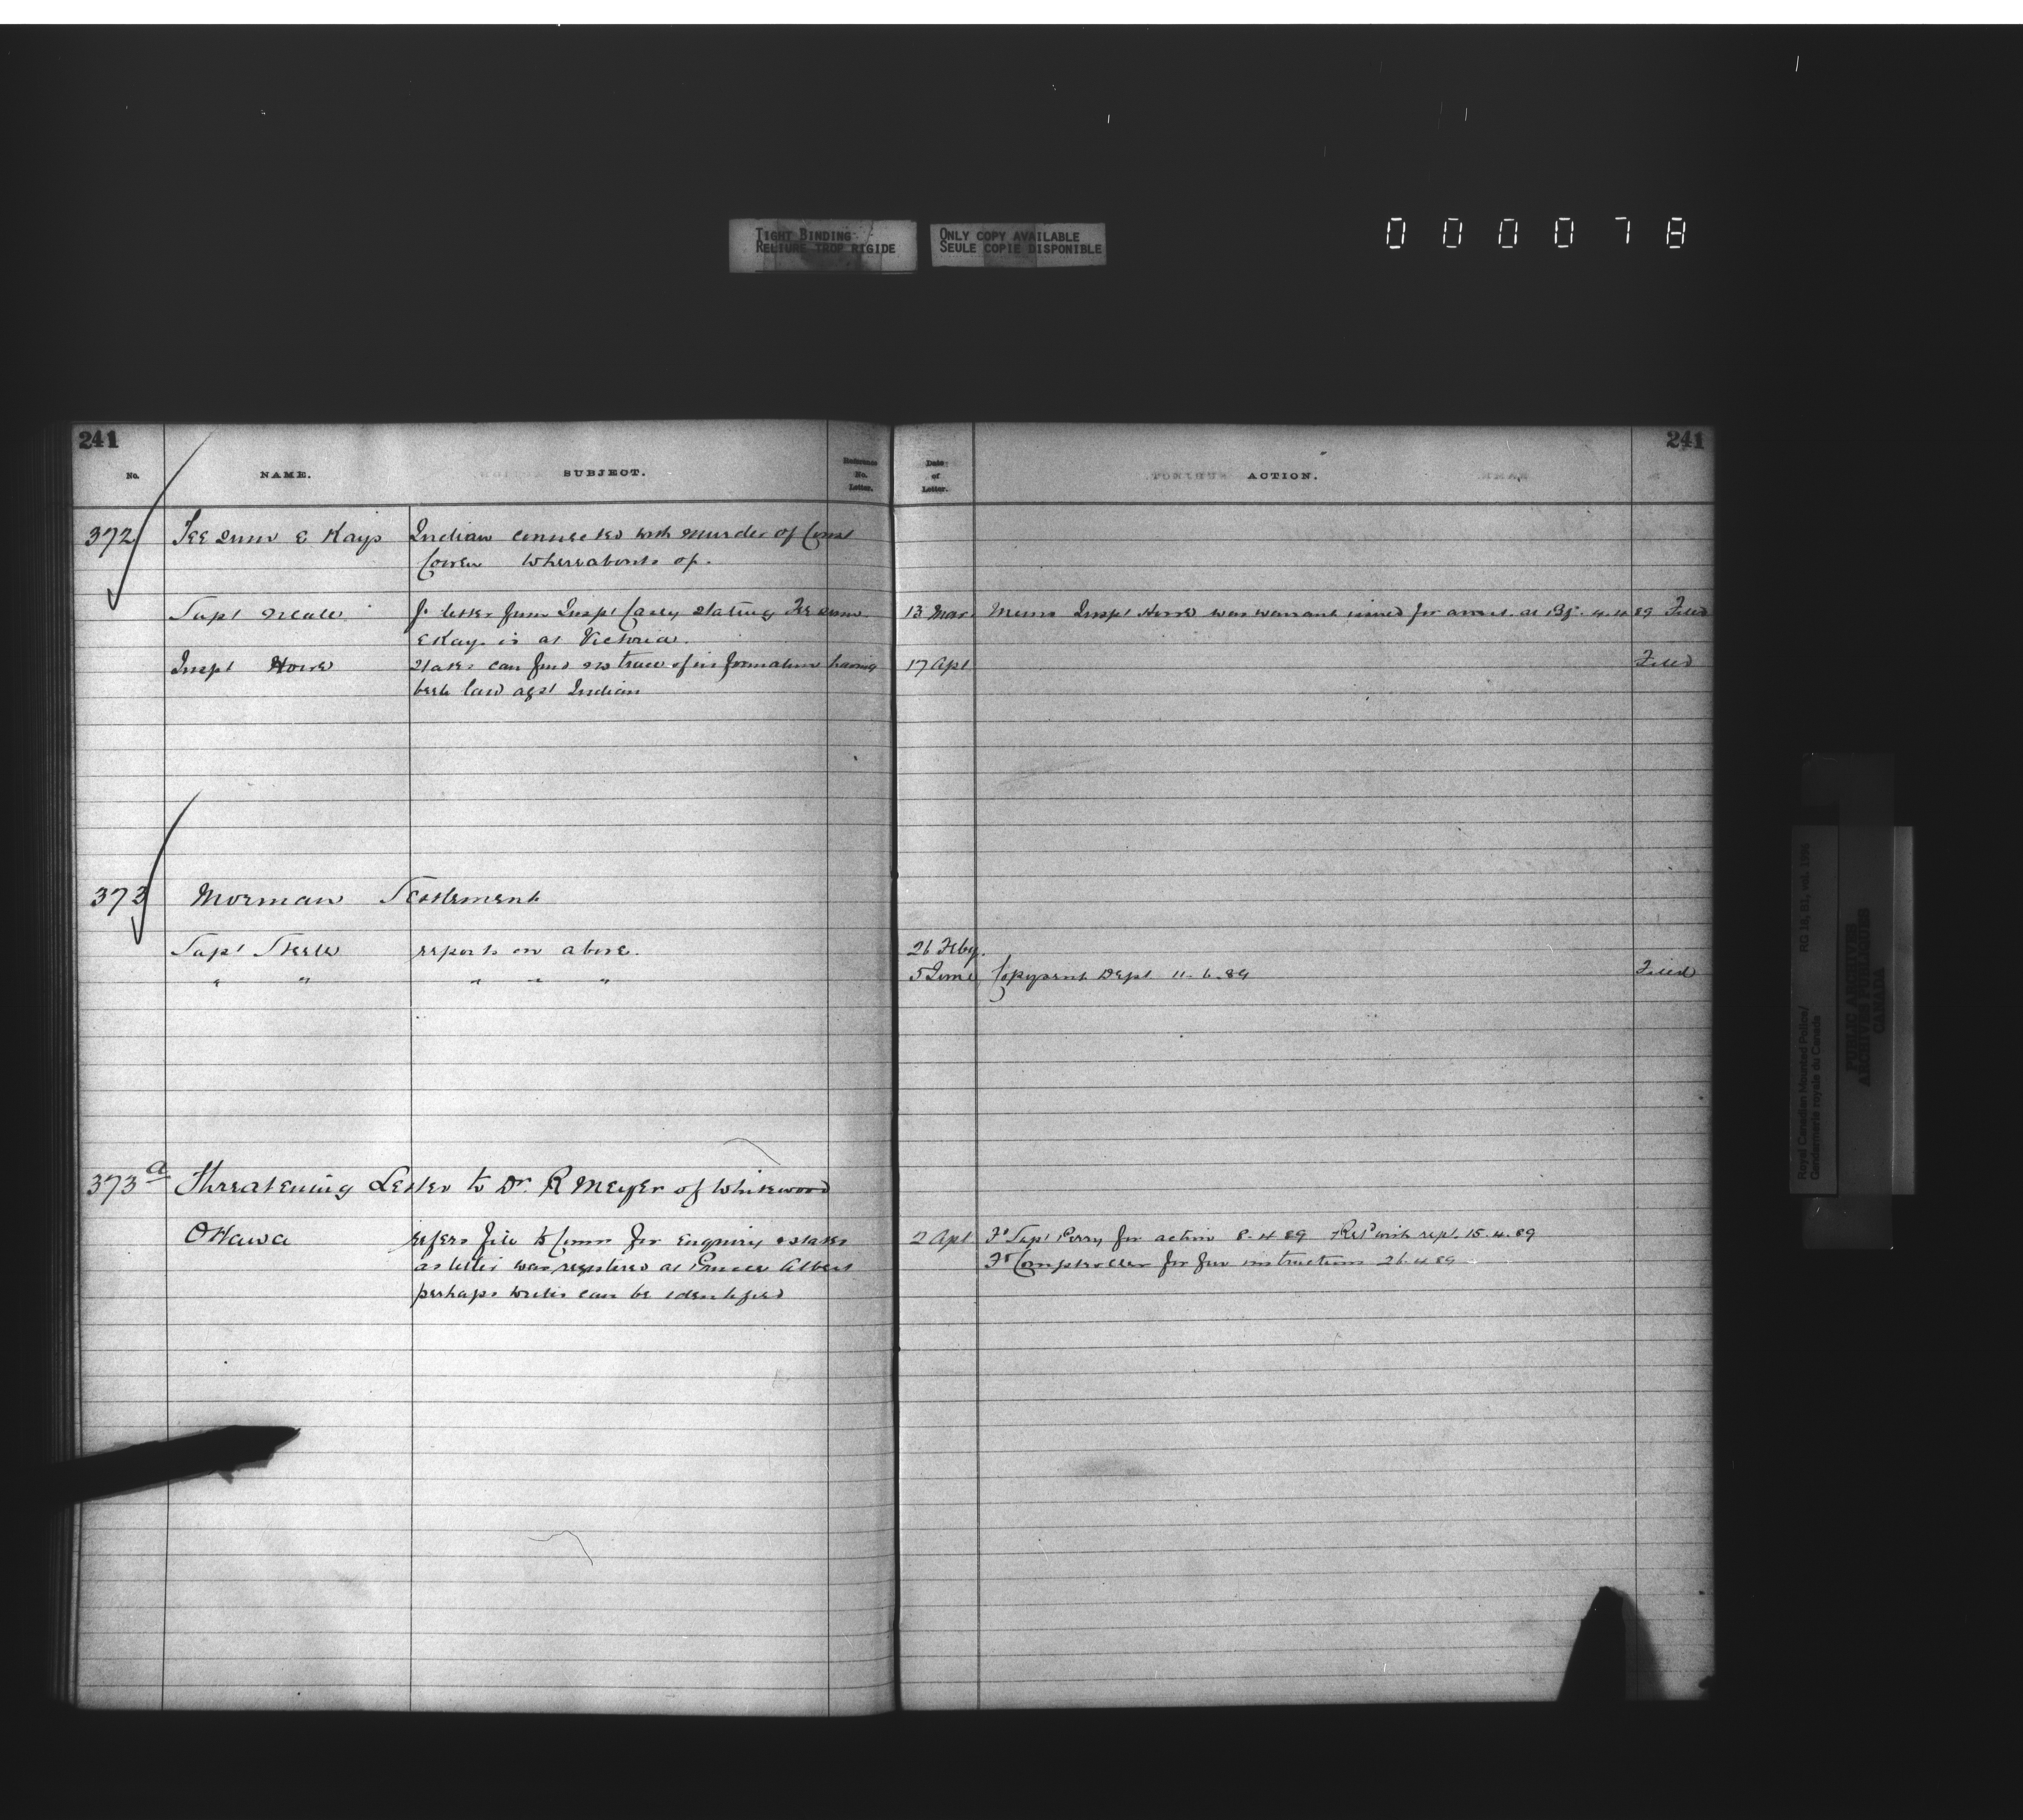 TIGHT BINDING
RELIURE TROP RIGIDE
ONLY COPY AVAILABLE
SEULE COPIE DISPONIBLE
000078
241
241
No. NAME. SUBJECT. Reference No. Letter. Date of Letter. ACTION.
372 Indian connected with murder of Const
Cowen Whereabouts of.
Supt Neale f. letter from Inspt Casey stating 13 Mar. Memo Inspt Howe was warrant issued for arrest at Bf. 4.4.89 Filed
E Kay is at Victoria.
Inspt Howe States can find no trace of information having 17 Apl Filed
been laid agst Indian
373 Morman Settlement
Supt Steele reports on above. 26 Feby.
" " " " " 5 June Copy sent Dept 11.6.89 Filed
373a Threatening Letter to Dr. R Meyer of Whitewood
Ottawa refers file to Comm for enquiry & states 2 Apl Fd Supt Perry for action 8.4.89 Retd with rept. 15.4.89
as letter was registered at Prince Albert Fd Comptroller for fur instructions 26.4.89
perhaps writer can be identified
Royal Canadian Mounted Police/
Gendarmerie royale du Canada
RG 18, B1, vol.
PUBLIC ARCHIVES
ARCHIVES PUBLIQUES
CANADA